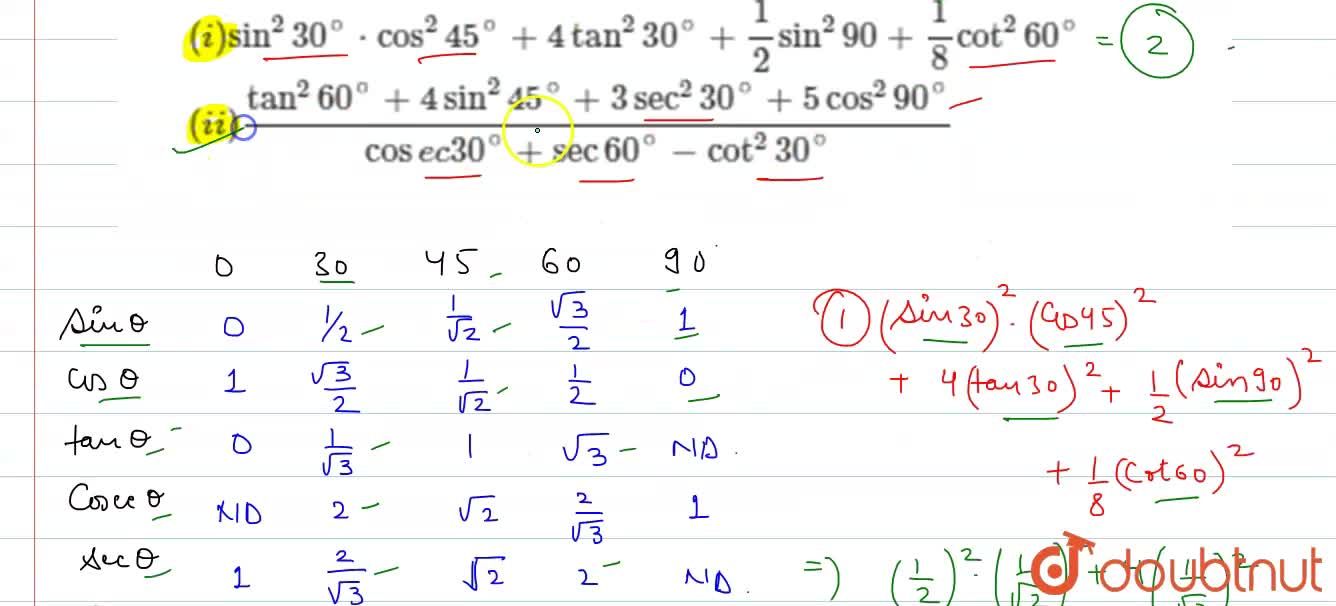 (i) sin² 30° · cos² 45° + 4 tan² 30° + 1/2 sin² 90 + 1/8 cot² 60° = 2
(ii) (tan² 60° + 4 sin² 45° + 3 sec² 30° + 5 cos² 90°) / (cosec30° + sec 60° − cot² 30°)
0 30 45 60 90
sin θ 0 1/2 1/√2 √3/2 1
cos θ 1 √3/2 1/√2 1/2 0
tan θ 0 1/√3 1 √3 ND
Cosec θ ND 2 √2 2/√3 1
sec θ 1 2/√3 √2 2 ND
① (sin30)² · (cos45)²
+ 4(tan30)² + 1/2 (sin90)²
+ 1/8 (cot60)²
=) (1/2)² · (1/√2)²
doubtnut